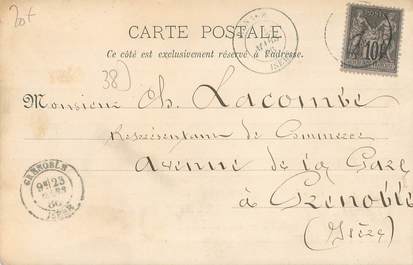 20+
CARTE POSTALE
Ce côté est exclusivement réservé à l'adresse.
38)
MARS
ISÈRE
10
Monsieur Ch. Lacombe
Représentant de Commerce
Avenue de la Gare
à Grenoble
(Isère)
GRENOBLE
9E 25
MARS
ISÈRE